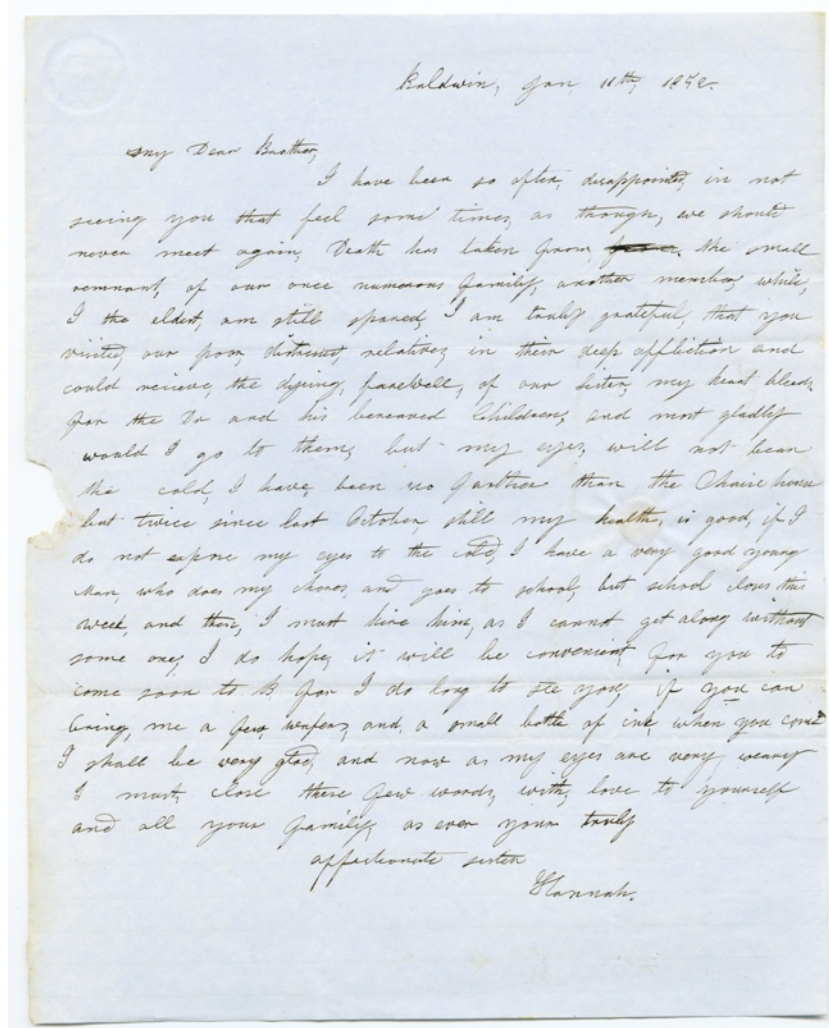 Baldwin, Jan, 11th, 1852.
My Dear Brother,
I have been so often, disappointed, in not
seeing you that feel some times, as though, we should
never meet again, Death has taken from, the small
remnant, of our once numerous family, another member, while,
I the eldest, am still spared, I am truly grateful, that you
visited, our poor, distressed, relatives, in their deep affliction and
could recieve, the dyeing, farewell, of our sister, my heart bleeds
for the Dr and his bereaved Children, and most gladly
would I go to them, but my eyes, will not bear
the cold, I have, been no farther than the Chaise house
but twice since last October, still my health, is good, if I
do not expose my eyes to the cold, I have a very good young
Man, who does my chores, and goes to school, but school closes this
week, and then, I must hire him, as I cannot get along without
some one, I do hope, it will be convenient, for you to
come soon to B for I do long to see you, if you can
bring, me a few wafers, and, a small bottle of ink, when you come
I shall be very glad, and now as my eyes are very weary
I must, close these few words, with, love to yourself
and all your family, as ever your truly
affectionate sister
Hannah.